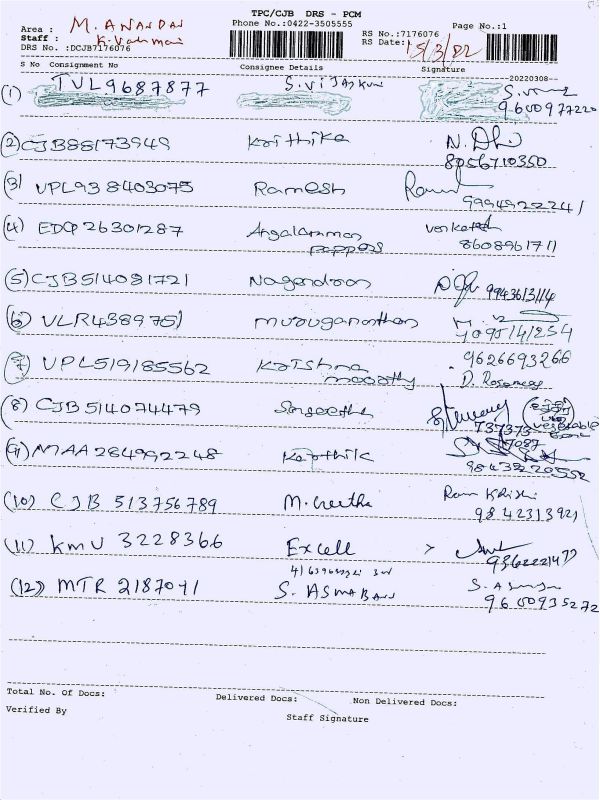 TPC/CJB DRS - PCM
Area : M. ANANDAN Phone No.:0422-3505555 Page No.:1
Staff : RS No.:7176076
DRS No. :DCJB7176076 RS Date: 15/3/22
S No Consignment No Consignee Details Signature
--20220308--
(1) TVL9687877 S.VIJAYKUM
9600977220
(2) CJB88173949 Krithika N. Dh
8056710350
(3) VPL938403075 Ramesh
9994922241
(4) EDQ26301287 Angalamman venkatesh
pappers 8608961711
(5) CJB514081721 Nagendran 9943613114
(6) VLR4389751 Muruganathan
7095141254
(7) VPL519185562 Krishna 9626693266
moorthy D. Rosemary
(8) CJB514074479 Sangeetha
737373
7087
vegetable
(9) MAA284992248 Karthik
9843220552
(10) CJB 513756789 M. Geetha Ram Krish
9842313921
(11) KMU 3228366 Excell >
9362221477
(12) MTR 2187041 S. ASMABAN
9600935272
Total No. Of Docs: Delivered Docs: Non Delivered Docs:
Verified By Staff Signature